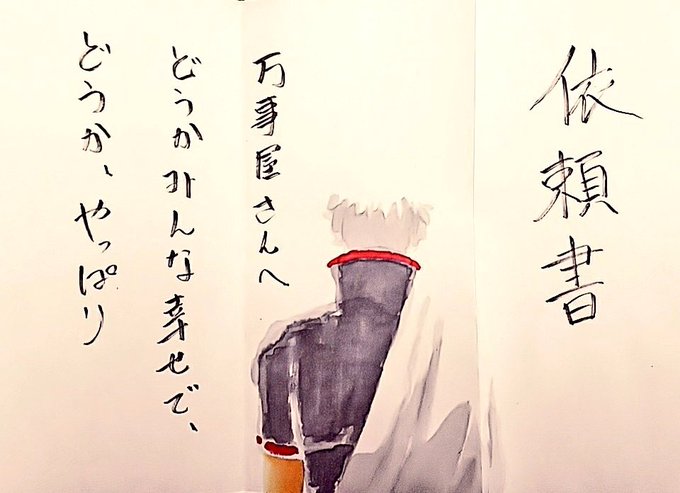 依頼書
万事屋さんへ
どうかみんな幸せで、
どうか、やっぱり